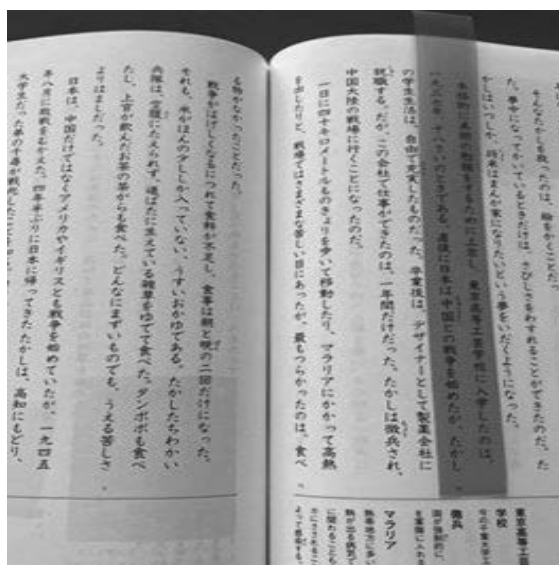 そんなたかしを救ったのは、絵をかくことだっ
た。夢中になってかいているときだけは、さびしさをわすれることができたのだ。た
かしはいつしか、将来はまんが家になりたいという夢をいだくようになった。
勉強をするために上京し、東京高等工芸学校に入学したのは、
さいのときである。直後に日本は中国との戦争を始めたが、たかし
の学生生活は、自由で充実したものだった。卒業後は、デザイナーとして製薬会社に
就職する。だが、この会社で仕事ができたのは、一年間だけだった。たかしは徴兵され、
中国大陸の戦場に行くことになったのだ。
一日に四十キロメートルものきょりを歩いて移動したり、マラリアにかかって高熱
を出したりと、戦場ではさまざまな苦しい目にあったが、最もつらかったのは、食べ
東京高等工芸
学校
徴兵
マラリア
熱帯地方に多い
る物がなかったことだった。
戦争がはげしくなるにつれて食料が不足し、食事は朝と晩の二回だけになった。
それも、米がほんの少ししか入っていない、うすいおかゆである。たかしたちわかい
兵隊は、空腹にたえられず、道ばたに生えている雑草をゆでて食べた。タンポポも食べ
たし、上官が飲んだお茶の茶がらも食べた。どんなにまずいものでも、うえる苦しさ
よりはましだった。
日本は、中国だけではなくアメリカやイギリスとも戦争を始めていたが、一九四五
年八月に敗戦をむかえた。四年半ぶりに日本に帰ってきたたかしは、高知にもどり、
大学生だった弟の千尋が戦死したことを